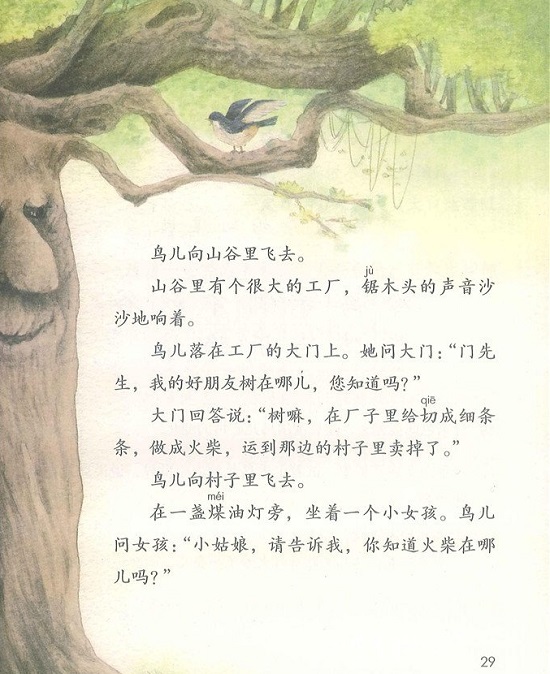 鸟儿向山谷里飞去。
jù
山谷里有个很大的工厂，锯木头的声音沙
沙地响着。
鸟儿落在工厂的大门上。她问大门：“门先
生，我的好朋友树在哪儿，您知道吗？”
qiē
大门回答说：“树嘛，在厂子里给切成细条
条，做成火柴，运到那边的村子里卖掉了。”
鸟儿向村子里飞去。
méi
在一盏煤油灯旁，坐着一个小女孩。鸟儿
问女孩：“小姑娘，请告诉我，你知道火柴在哪
儿吗？”
29